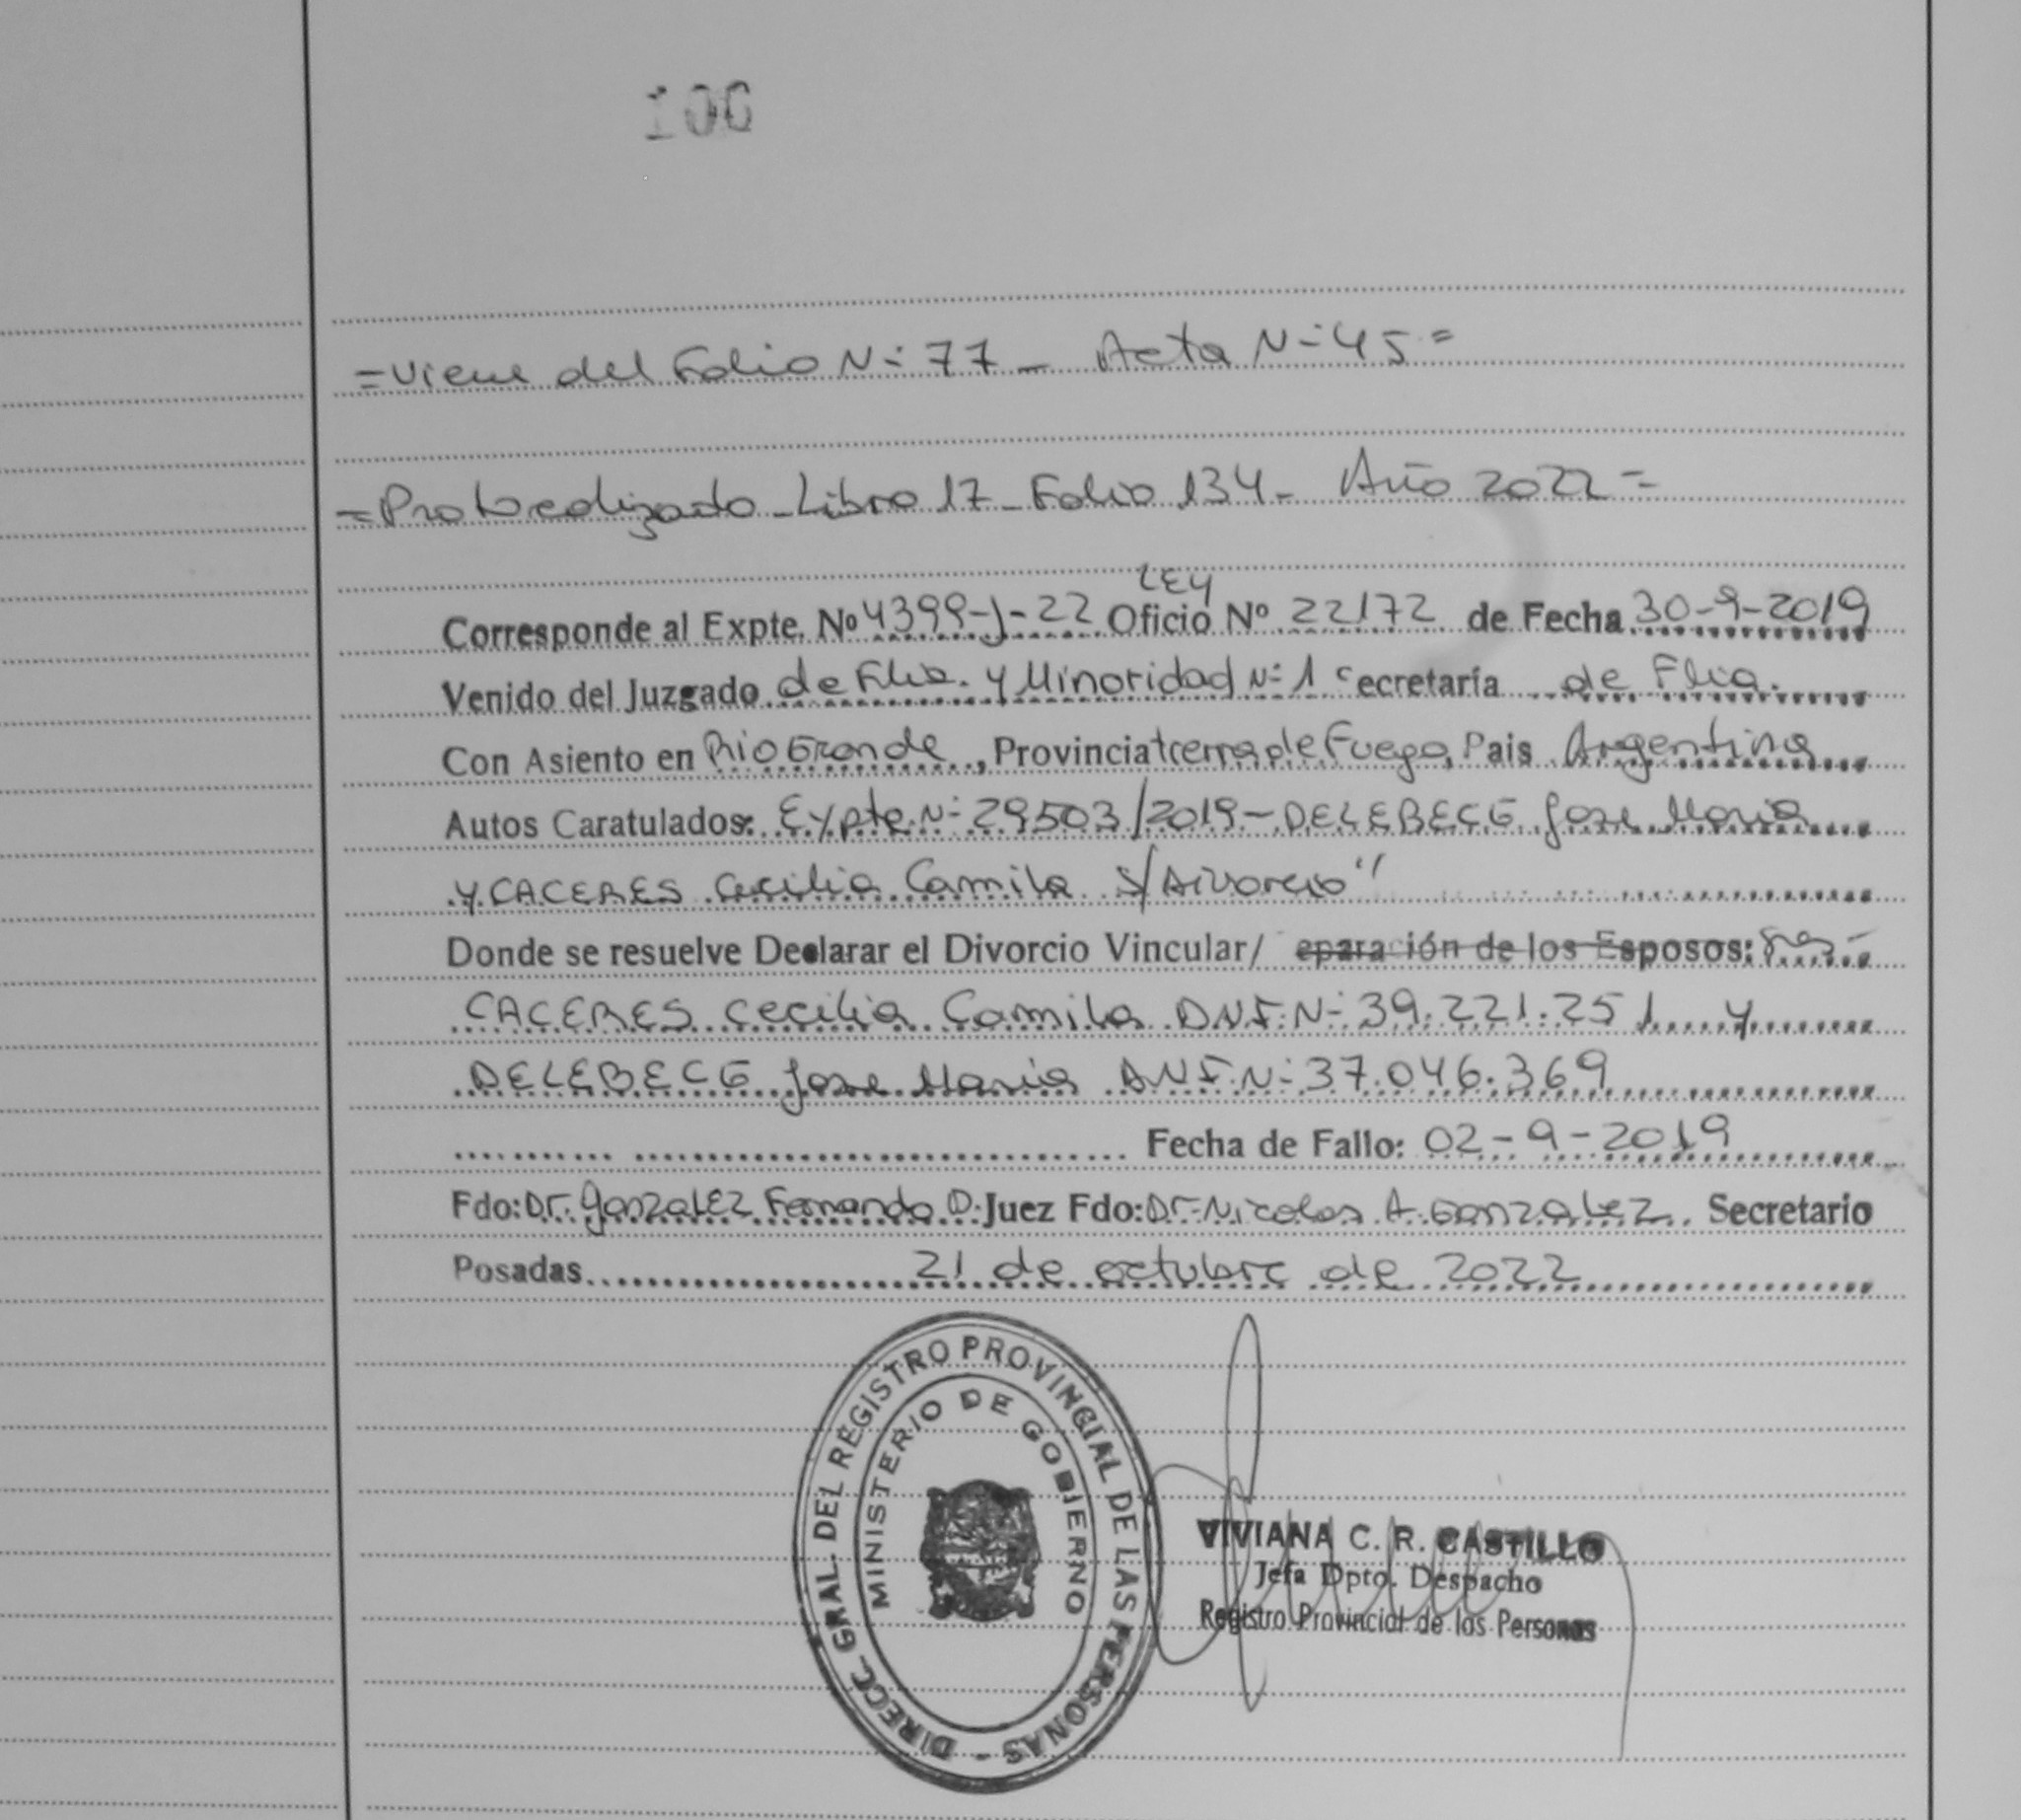 100
=Viene del Folio N-: 77 - Acta N-: 45=
=Protocolizado - Libro 17 - Folio 134 - Año 2022=
LEY
Corresponde al Expte. Nº 4399-J-22 Oficio Nº 22172 de Fecha 30-9-2019
Venido del Juzgado de Flia. y Minoridad N-: 1 ecretaría de Flia.
Con Asiento en Rio Grande, Provincia tierra de Fuego, Pais Argentina
Autos Caratulados: Expte. N-: 29503/2019-DELEBECG Jose Maria
y CACERES Cecilia Camila S/Divorcio"
Donde se resuelve Declarar el Divorcio Vincular/ eparación de los Esposos:
CACERES Cecilia Camila D.N.I. N-: 39.221.251 y
DELEBECG Jose Maria D.N.I. N-: 37.046.369
Fecha de Fallo: 02-9-2019
Fdo: Dr. Gonzalez Fernando D. Juez Fdo: Dr. Nicolas A. Gonzalez. Secretario
Posadas 21 de octubre de 2022
DIRECC. GRAL. DEL REGISTRO PROVINCIAL DE LAS PERSONAS -
MINISTERIO DE GOBIERNO
VIVIANA C. R. CASTILLO
Jefa Dpto. Despacho
Registro Provincial de los Personas